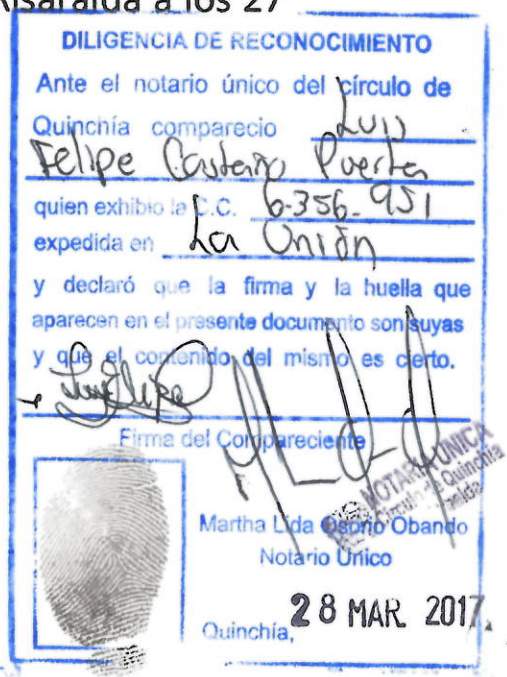 Risaralda a los 27
DILIGENCIA DE RECONOCIMIENTO
Ante el notario único del círculo de
Quinchía comparecio Luis
Felipe Castaño Puerta
quien exhibio la C.C. 6-356-951
expedida en La Unión
y declaró que la firma y la huella que
aparecen en el presente documento son suyas
y que el contenido del mismo es cierto.
Firma del Compareciente
NOTARIA UNICA
Círculo de Quinchía
Martha Lida Osorio Obando
Notario Unico
28 MAR. 2017
Quinchía,